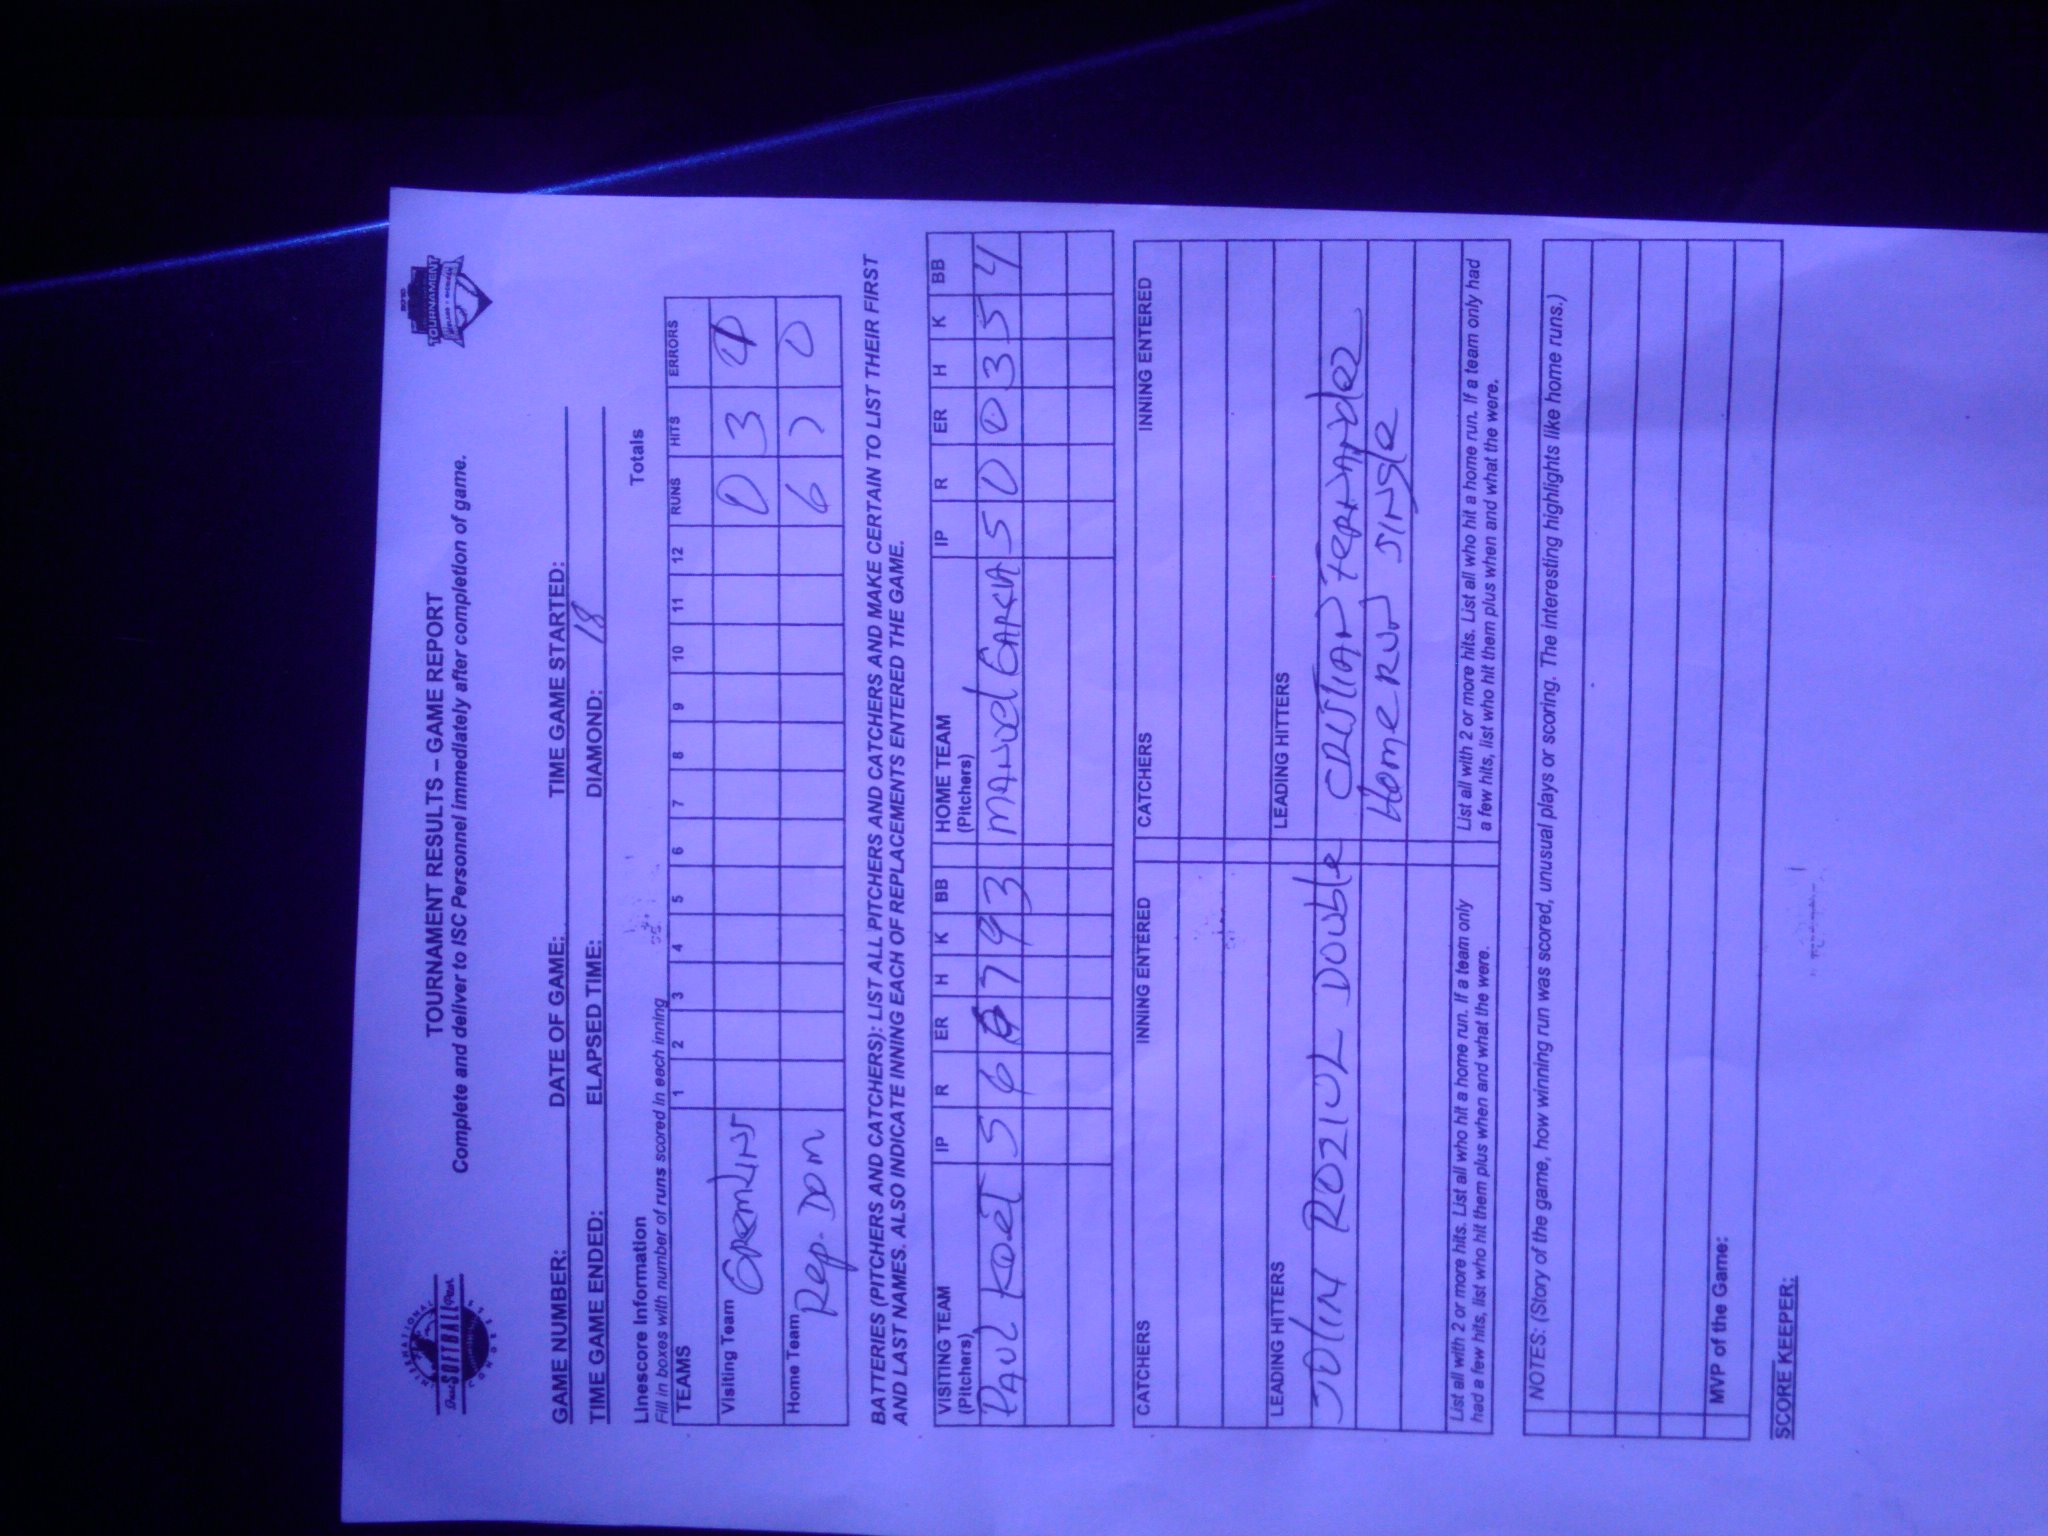 INTERNATIONAL
Fast SOFTBALL Pan
CONGRESS
TOURNAMENT
TOURNAMENT RESULTS – GAME REPORT
Complete and deliver to ISC Personnel immediately after completion of game.
GAME NUMBER: DATE OF GAME: TIME GAME STARTED:
TIME GAME ENDED: ELAPSED TIME: DIAMOND: 18
Linescore Information Totals
Fill in boxes with number of runs scored in each inning
TEAMS 1 2 3 4 5 6 7 8 9 10 11 12 RUNS HITS ERRORS
Visiting Team GREMLINS 0 3
Home Team Rep. Dom 6 7 0
BATTERIES (PITCHERS AND CATCHERS): LIST ALL PITCHERS AND CATCHERS AND MAKE CERTAIN TO LIST THEIR FIRST
AND LAST NAMES. ALSO INDICATE INNING EACH OF REPLACEMENTS ENTERED THE GAME.
VISITING TEAM IP R ER H K BB HOME TEAM IP R ER H K BB
(Pitchers) (Pitchers)
PAUL Koet 5 6 6 7 9 3 MANUel GARCIA 5 0 0 3 5 4
CATCHERS INNING ENTERED CATCHERS INNING ENTERED
LEADING HITTERS LEADING HITTERS
Double CRISTIAN FerNANdez
Home RUN SINgle
List all with 2 or more hits. List all who hit a home run. If a team only List all with 2 or more hits. List all who hit a home run. If a team only had
had a few hits, list who hit them plus when and what the were. a few hits, list who hit them plus when and what the were.
NOTES: (Story of the game, how winning run was scored, unusual plays or scoring. The interesting highlights like home runs.)
MVP of the Game:
SCORE KEEPER: